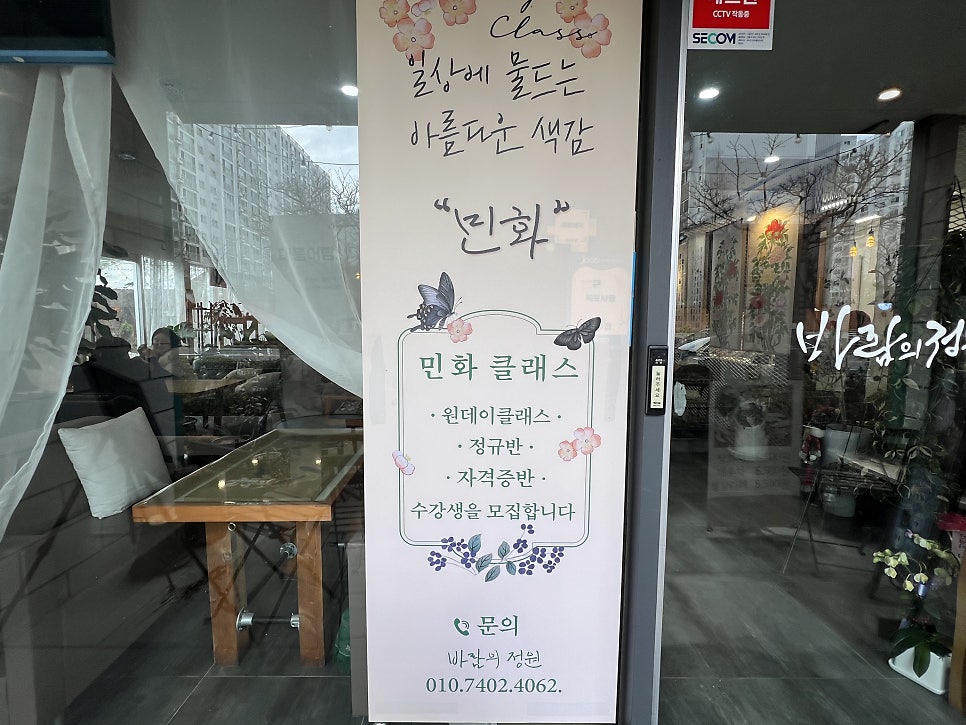 Class
일상에 물드는
아름다운 색감
"민화"
민화 클래스
· 원데이클래스 ·
· 정규반 ·
· 자격증반 ·
수강생을 모집합니다
문의
바람의 정원
010.7402.4062.
CCTV 작동중
SECOM
바람의 정